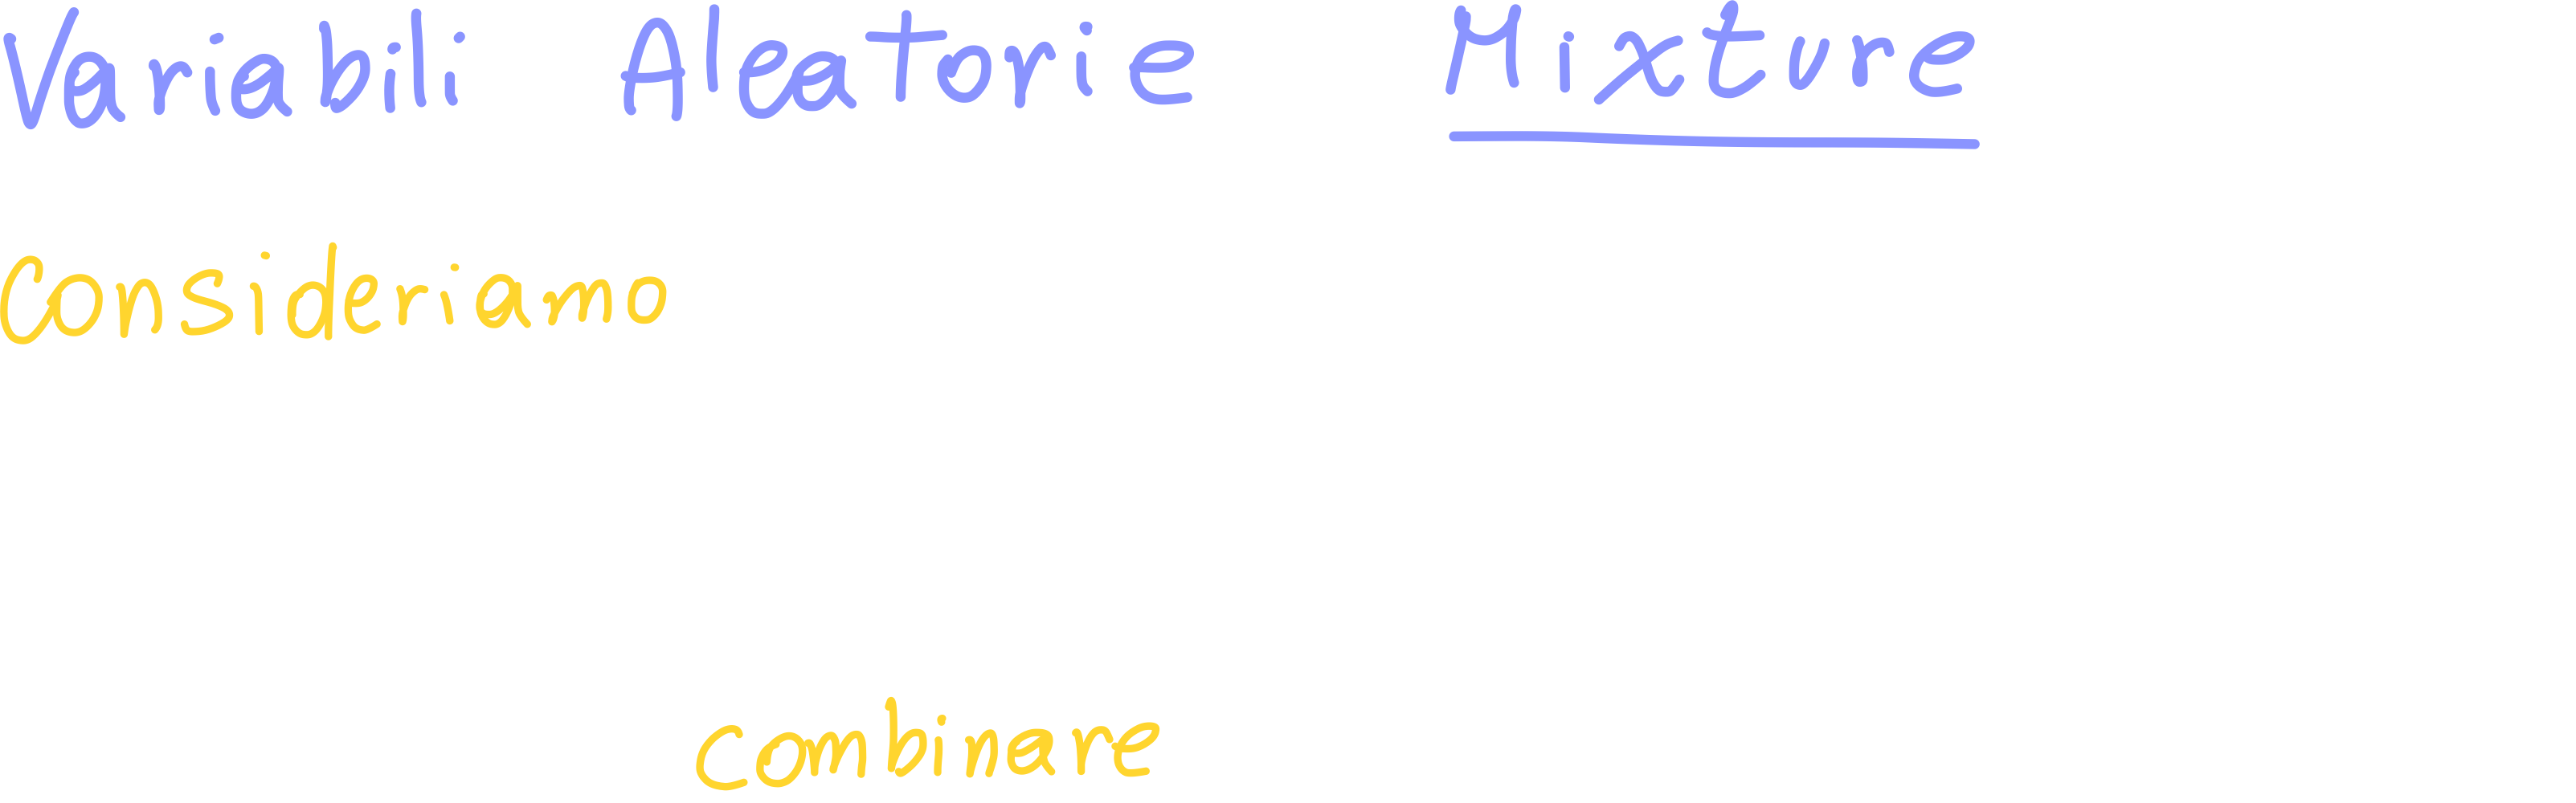 Variabili Aleatorie Mixture
Consideriamo
Combinare